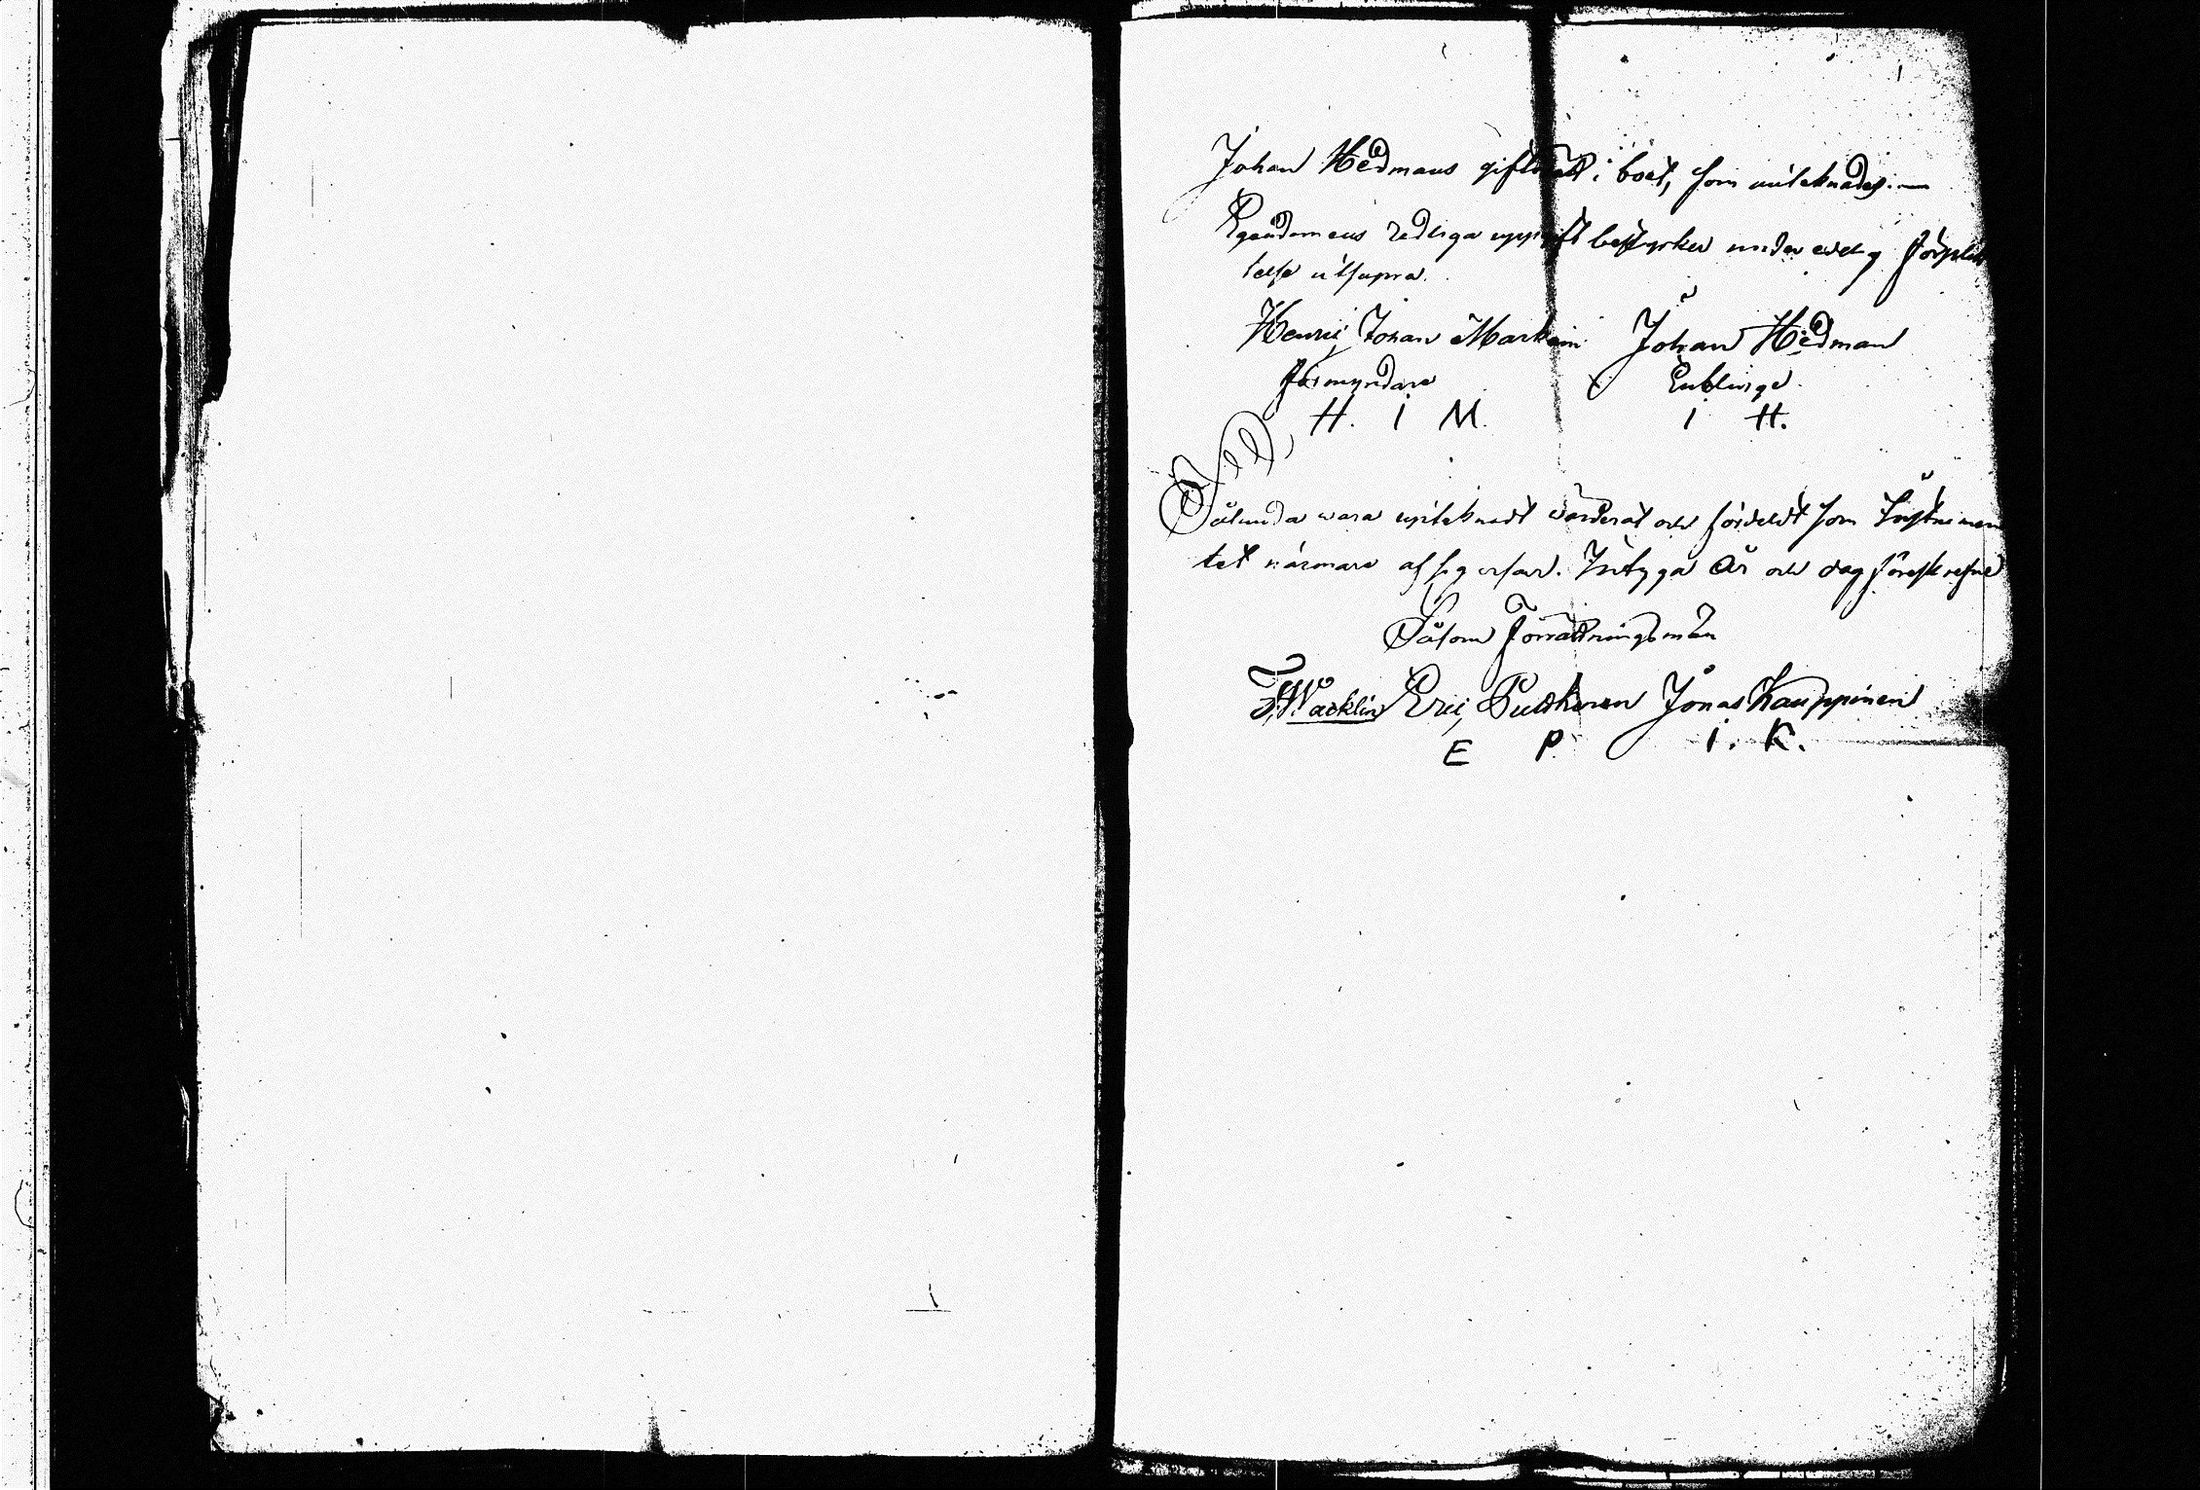 Johan Hedmans giftorätt i boet, som anteknades. —
Egendomens redliga uppgift bestyrker under edelig förplik
telse utsupra.
Henric Johan Markain Johan Hedman
förmyndare Enklinge
H. I M. I H.
Sålunda vara upteknadt värderat och fördeldt som Instrumen
tet närmare af sig visar. Intyga År och dag föreskrefne
Såsom Förrättningsmän
Wacklin Eric Pulkkinen Jonas Kauppinen
E P. I. K.